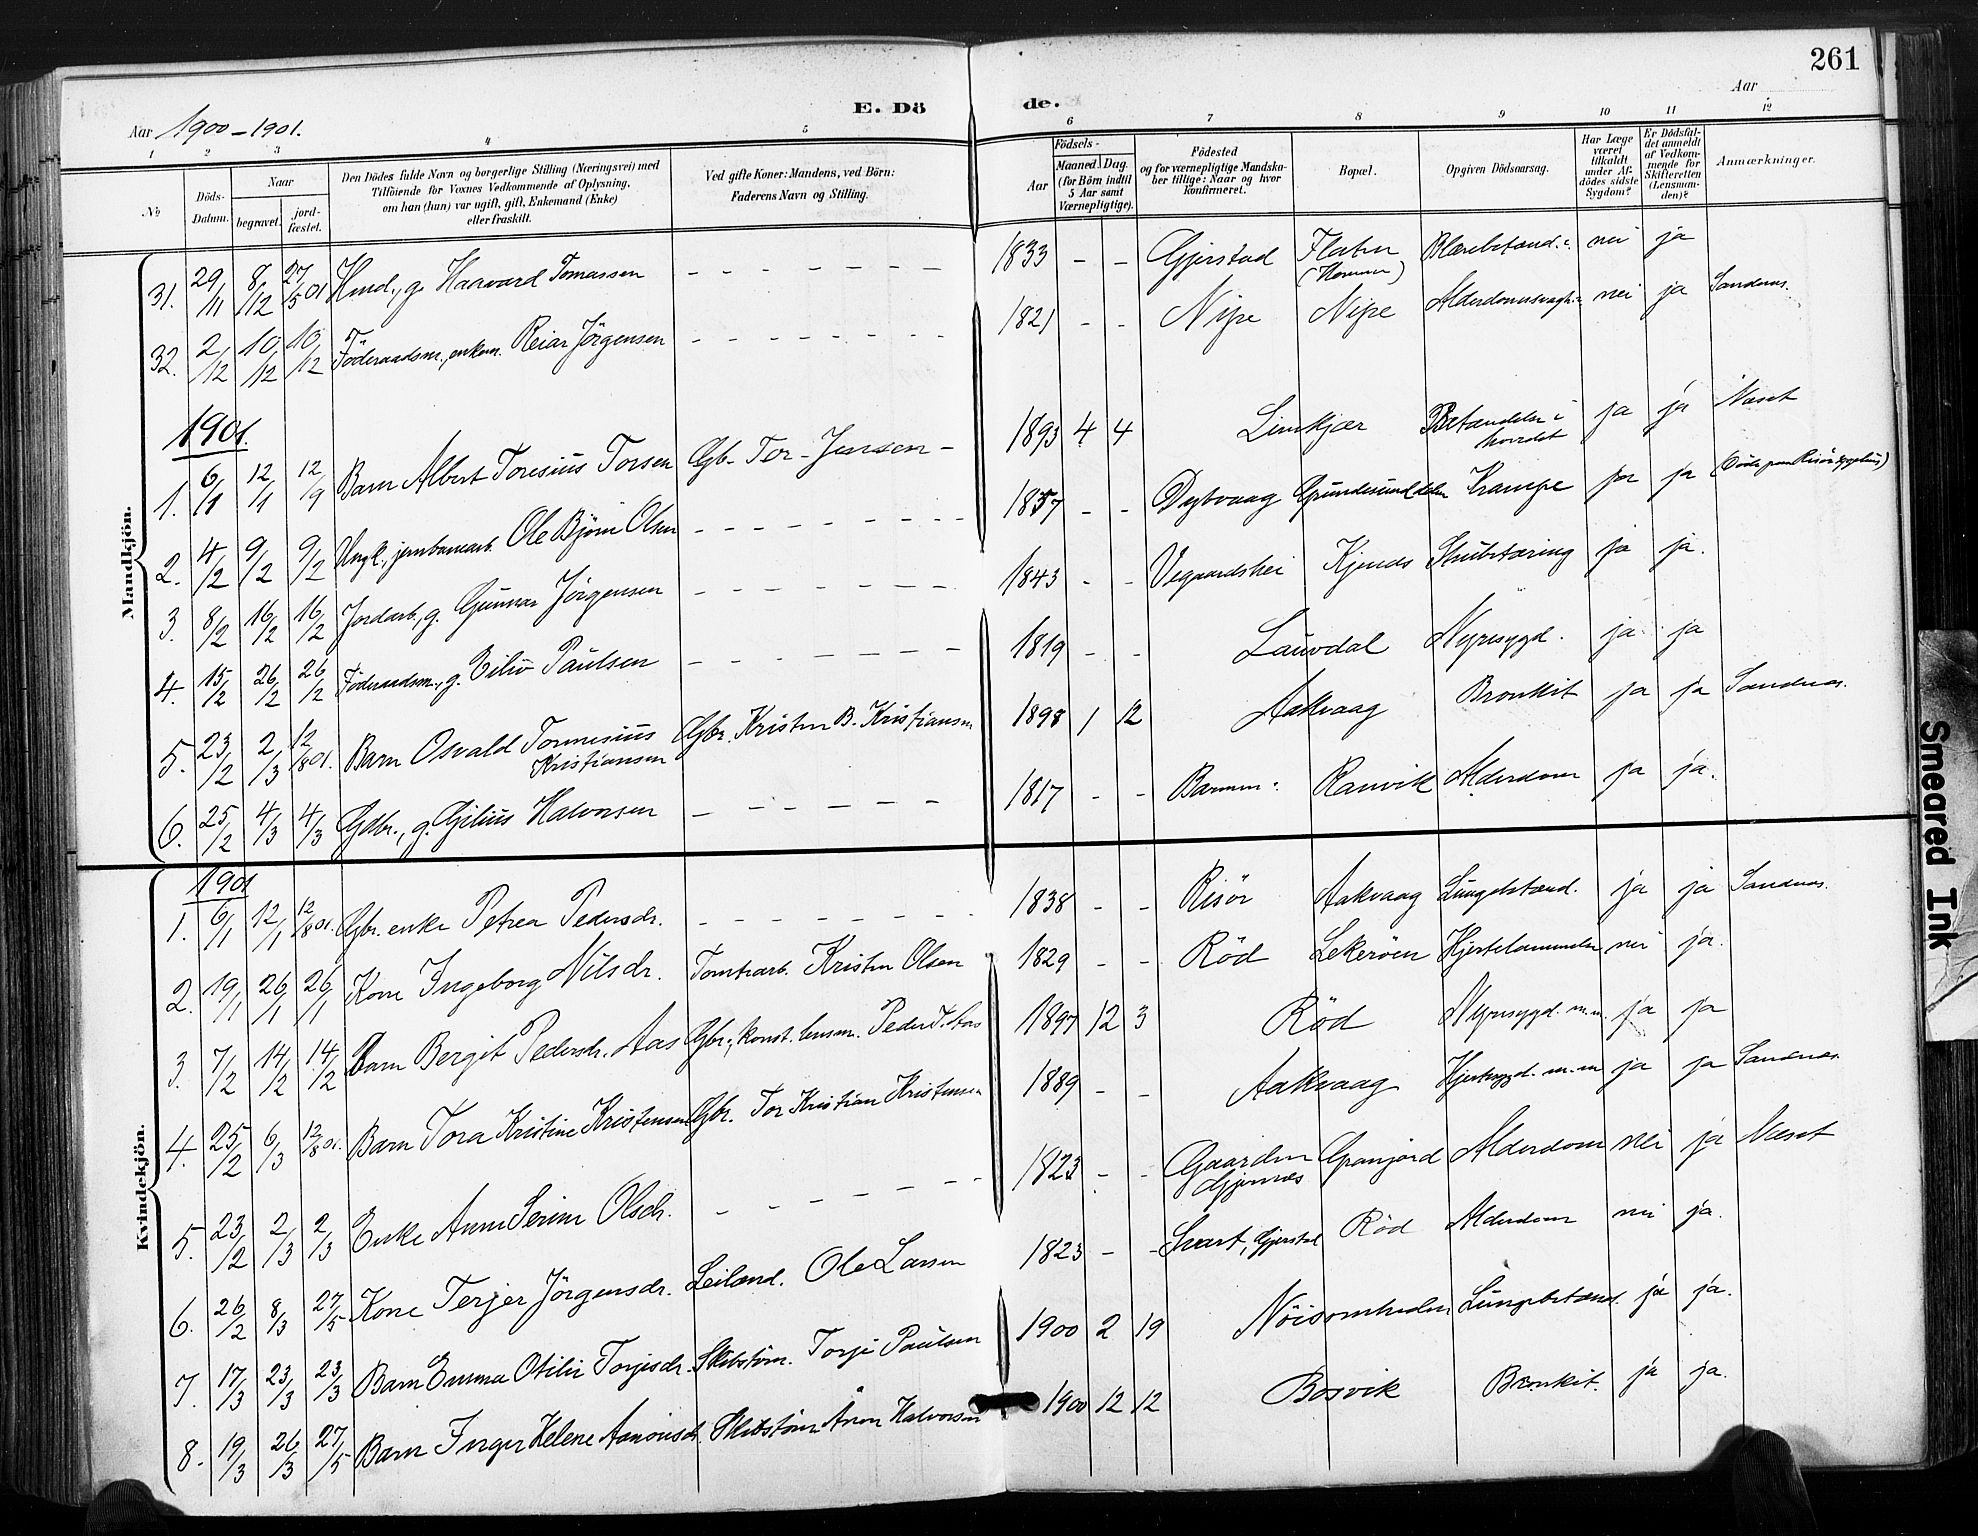 261
E. Döde.
Aar 1900-1901.
Aar
1 2 3 4 5 6 7 8 9 10 11 12
No
Döds-Datum.
Naar begravet. jordfæstet.
Den Dödes fulde Navn og borgerlige Stilling (Næringsvei) med Tilföiende for Voxnes Vedkommende af Oplysning, om han (hun) var ugift, gift, Enkemand (Enke) eller fraskilt.
Ved gifte Koner: Mandens, ved Börn: Faderens Navn og Stilling.
Födsels- Aar Maaned. Dag. (for Börn indtil 5 Aar samt Værnepligtige).
Födested og for værnepligtige Mandskaber tillige: Naar og hvor konfirmeret.
Bopæl.
Opgiven Dödsaarsag.
Har Læge været tilkaldt under Afdödes sidste Sygdom?
Er Dödsfaldet anmeldt af Vedkommende for Skifteretten (Lensmanden)?
Anmærkninger.
Mandkjön.
31. 29/11 8/12 27/5 01 Hmd., g. Haavard Tomassen - - - 1833 - - Gjerstad Flaten Blærebetænd. nei ja
32. 2/12 10/12 10/12 Föderaadsm., enkem. Reiar Jörgensen - - - 1821 - - Nipe Nipe Alderdomssvagh. nei ja Sandnes.
1901.
1. 6/1 12/1 12/9 Barn Albert Toresius Torsen Gb. Tor Jensen - 1893 4 4 Limkjær Betændelse i hovdet ja ja Næset
2. 4/2 9/2 9/2 Ungk., jernbanearb. Ole Björn Olsen - - - 1857 - - Dybvaag Gundersunddalen Krampe ja ja (Döde paa Risör sygehus)
3. 8/2 16/2 16/2 Jordarb., g. Gunnar Jörgensen - - - 1843 - - Vegaardshei Kjends Strubetæring ja ja.
4. 15/2 26/2 26/2 Föderaadsm., g. Eiliv Paulsen - - - 1819 - - Lauvdal Nyresygd. ja ja
5. 23/2 2/3 12/8 01. Barn Osvald Tommesius Kristiansen Gbr. Kristen B. Kristiansen 1898 1 12 Aakvaag Bronkit ja ja Sandnes.
6. 25/2 4/3 4/3 Gdbr., g. Gjelius Halvorsen - - - 1817 - - Bamm: Ranvik Alderdom ja ja.
Kvindekjön.
1901
1. 6/1 12/1 12/8 01. Gbr. enke Petrea Pedersdr. - - - 1838 - - Risör Aakvaag Lungebetænd. ja ja Sandnes.
2. 19/1 26/1 26/1 Kone Ingeborg Nilsdr. Tomtearb. Kristen Olsen 1829 - - Röd Lekeröen Hjertelammelse nei ja.
3. 7/2 14/2 14/2 Barn Bergit Pedersdr. Aas Gbr., konst. lensm. Peder T. Aas 1897 12 3 Röd Nyresygd. m.m. ja ja
4. 25/2 6/3 12/8 01. Barn Tora Kristine Kristensen Gbr. Tor Kristian Kristensen 1889 - - Aakvaag Hjertesygd. m.m ja ja Sandnes.
5. 23/2 2/3 2/3 Enke Anne Serine Olsdr. - - - 1823 - - Gaarden Gjernes Granjord Alderdom nei ja Næset
6. 26/2 8/3 27/5 Kone Terjer Jörgensdr. Leilænd. Ole Larsen 1823 - - Svart, Gjerstad Röd Alderdom nei ja.
7. 17/3 23/3 23/3 Barn Emma Otilie Torjesdr. Skibstöm. Torje Paulsen 1900 2 19 Nöisomheden Lungebetænd. ja ja.
8. 19/3 26/3 27/5 Barn Inger Helene Aanonsdr. Skibstöm Anon Halvorsen 1900 12 12 Bosvik Bronkit. ja ja.
Smeared Ink